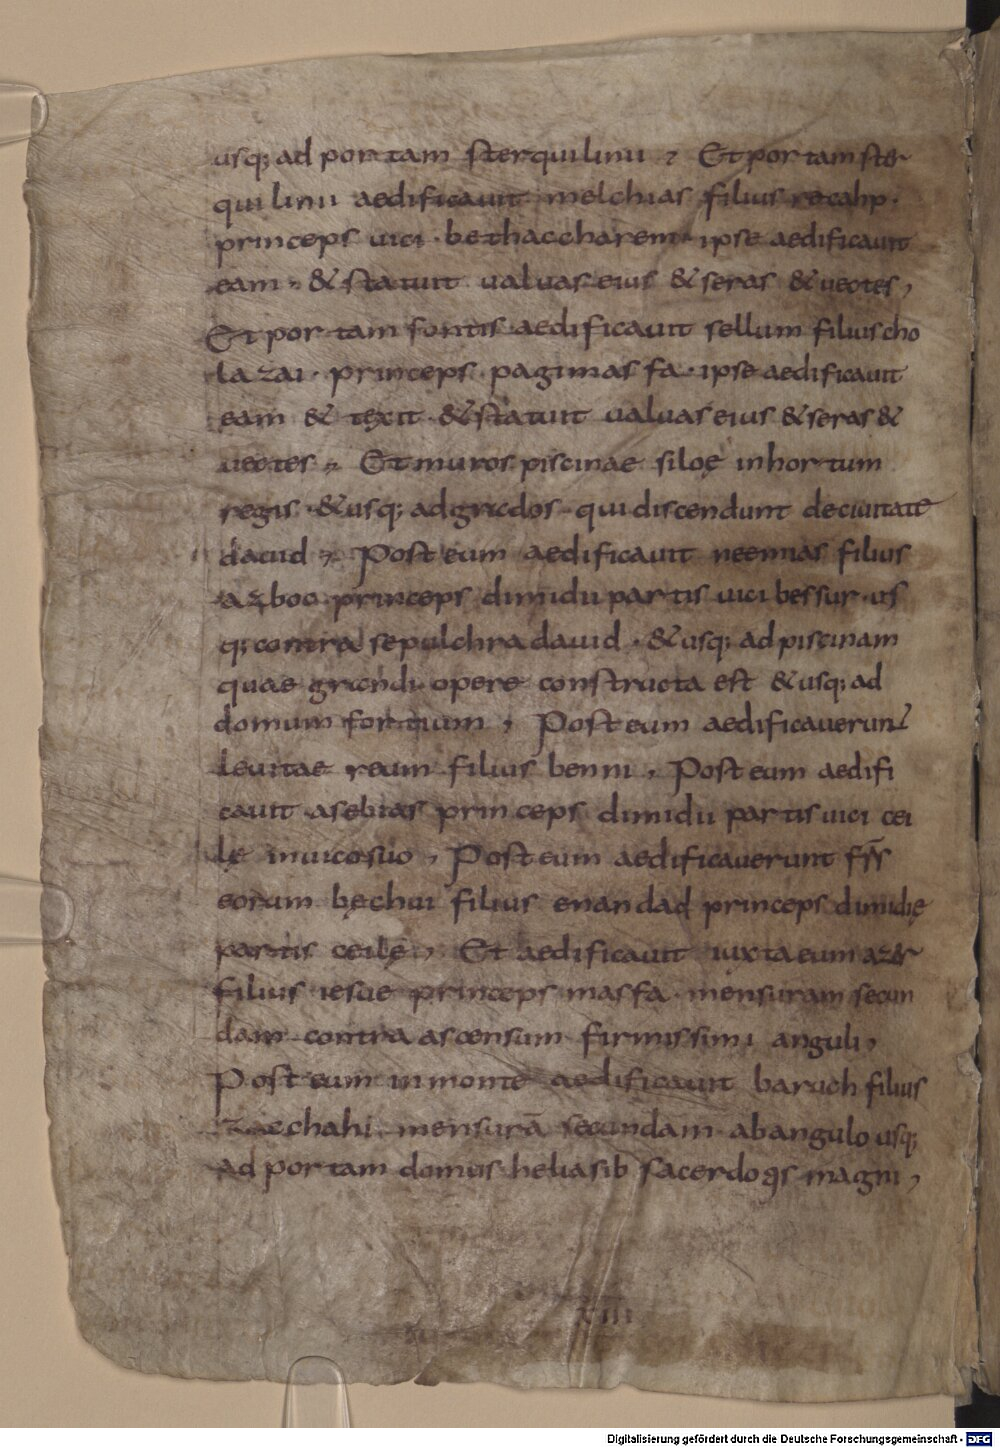 usq; ad portam sterquilinii , Et portam ster
quilinii aedificauit melchias filius recahp ·
princeps uici · bethaccharem · ipse aedificauit
eam , & statuit ualuas eius & seras & uectes ,
Et portam fontis aedificauit sellum filius cho
lazai · princeps · pagi masfa · ipse aedificauit
eam & texit · & statuit ualuas eius & seras &
uectes , Et muros piscinae siloę inhortum
regis · & usq; adgrados · qui discendunt deciuitate
dauid , Post eum aedificauit neemias filius
azboc princeps dimidii partis uici bessur · us
q; contra sepulchra dauid · & usq; ad piscinam
quae grandi opere constructa est & usq; ad
domum fortium , Post eum aedificauerunt
leuitae reum filius benni , Post eum aedifi
cauit asebias princeps dimidii partis uici cei
lę inuicosuo , Post eum aedificauerunt frs
eorum bęchui filius enandad princeps dimidię
partis ceilę , Et aedificauit iuxta eum azer
filius iesue princeps masfa · mensuram secun
dam contra ascensum firmissimi anguli ,
Post eum inmonte aedificauit baruch filius
zacchahi mensurā secundam abangulo usq;
ad portam domus heliasib sacerdotis magni ,
xiii
Digitalisierung gefördert durch die Deutsche Forschungsgemeinschaft - DFG